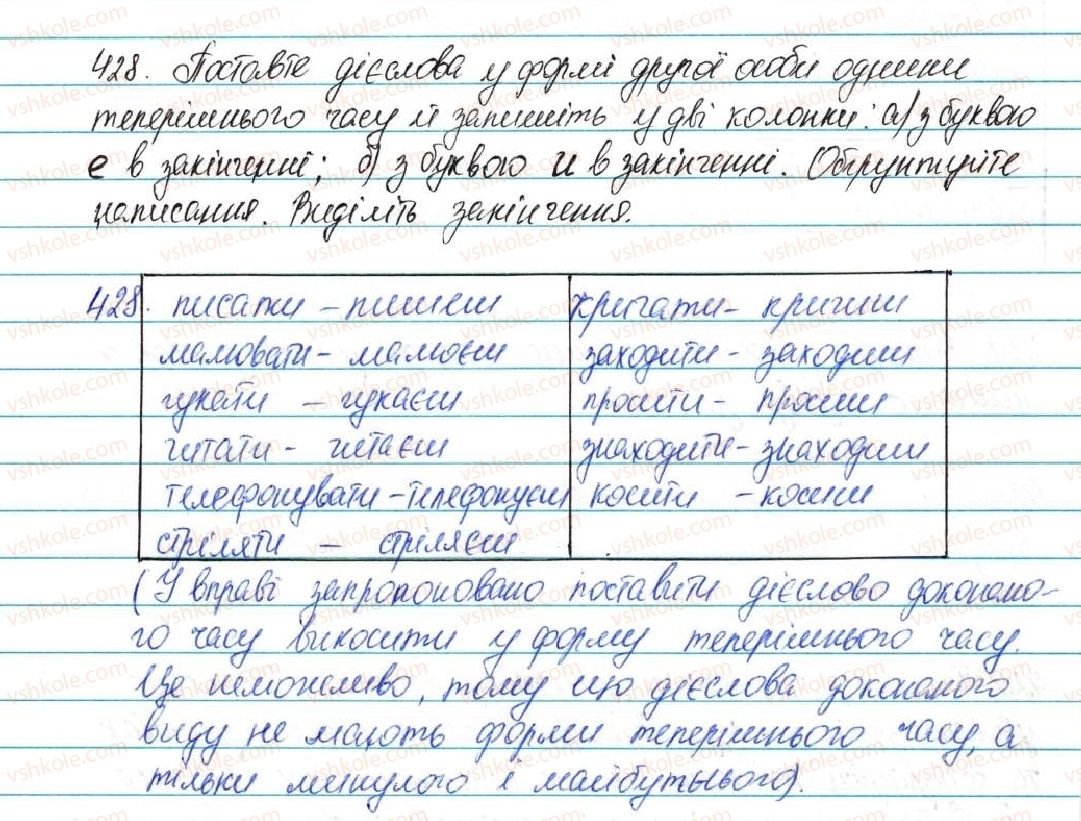 428. Поставте дієслова у формі другої особи однини
теперішнього часу й запишіть у дві колонки: а) з буквою
е в закінченні; б) з буквою и в закінченні. Обґрунтуйте
написання. Виділіть закінчення.
428. писати – пишеш кричати – кричиш
малювати – малюєш заходити – заходиш
гукати – гукаєш просити – просиш
читати – читаєш знаходити – знаходиш
телефонувати – телефонуєш косити – косиш
стріляти – стріляєш
(У вправі запропоновано поставити дієслово доконано-
го часу викосити у форму теперішнього часу.
Це неможливо, тому що дієслова доконаного
виду не мають форми теперішнього часу, а
тільки минулого і майбутнього).
vshkole.com